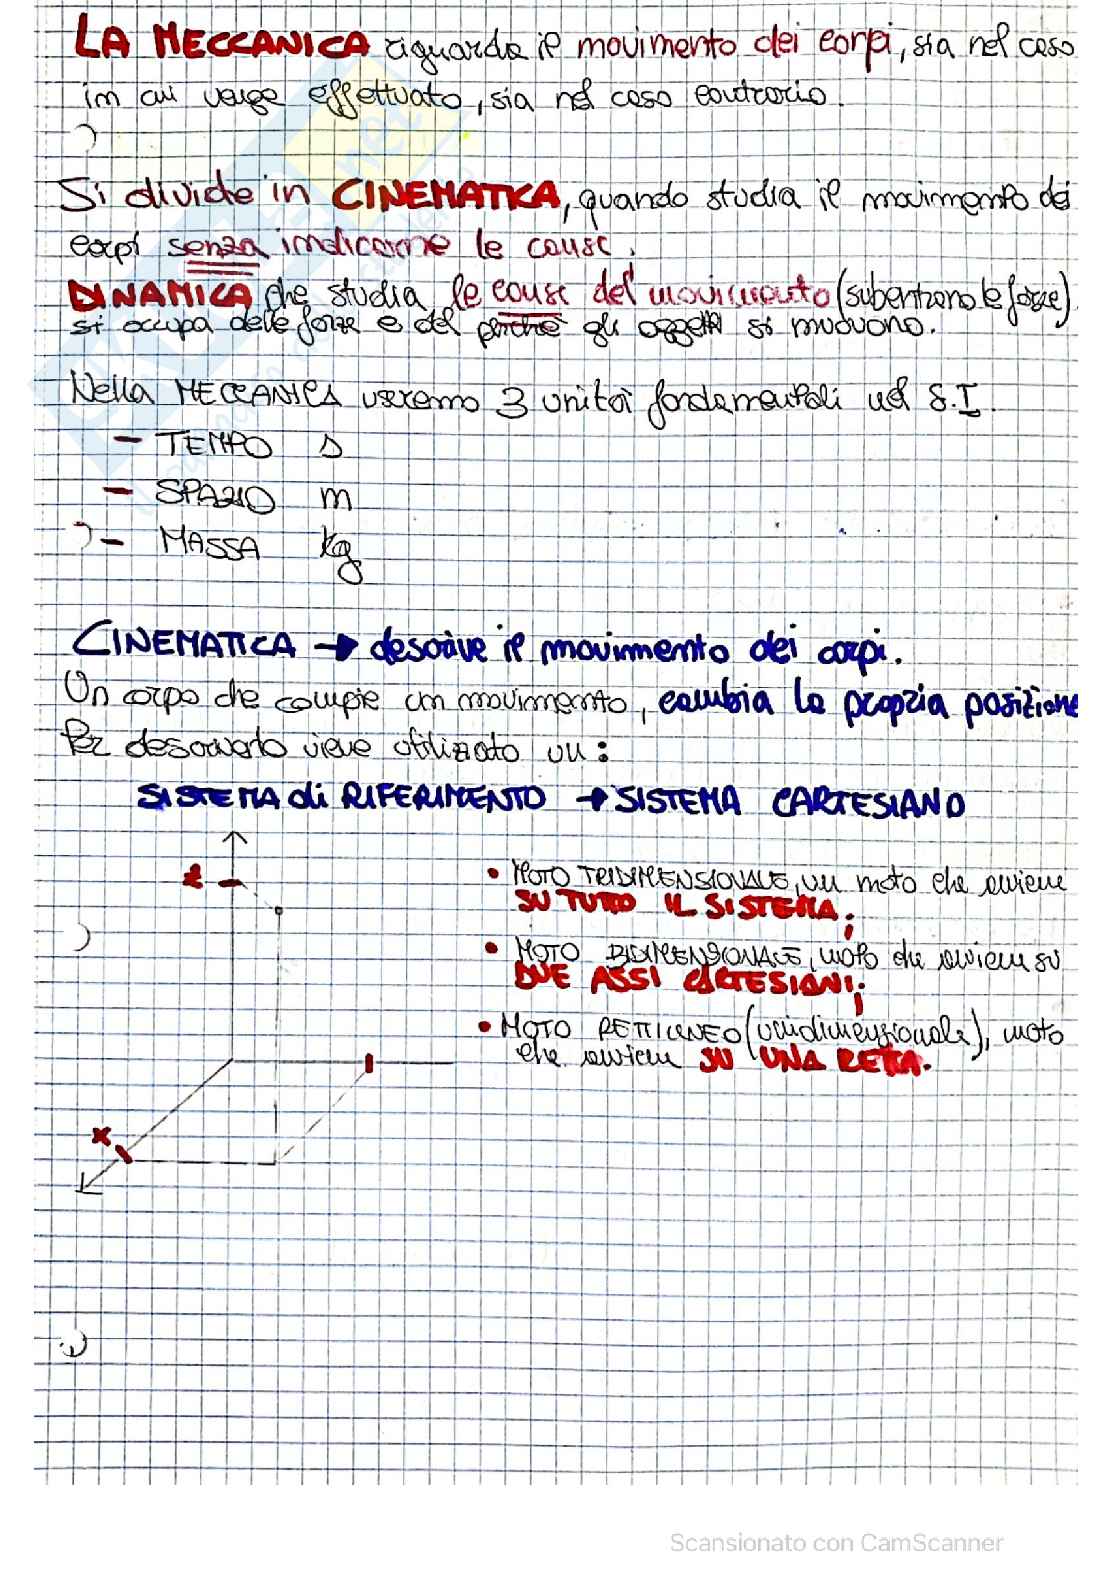 LA MECCANICA riguarda il movimento dei corpi, sia nel caso
in cui venga effettuato, sia nel caso contrario.
Si divide in CINEMATICA, quando studia il movimento dei
corpi senza indicarne le cause.
DINAMICA che studia le cause del movimento (subentrano le forze)
si occupa delle forze e del perché gli oggetti si muovono.
Nella MECCANICA vedremo 3 unità fondamentali nel S.I.
- TEMPO s
- SPAZIO m
- MASSA kg
CINEMATICA → descrive il movimento dei corpi.
Un corpo che compie un movimento, cambia la propria posizione
Per descriverlo viene utilizzato un:
SISTEMA di RIFERIMENTO → SISTEMA CARTESIANO
z
• MOTO TRIDIMENSIONALE, un moto che avviene
SU TUTTO IL SISTEMA;
• MOTO BIDIMENSIONALE, moto che avviene su
DUE ASSI CARTESIANI;
• MOTO RETTILINEO (unidimensionale), moto
che avviene SU UNA RETTA.
x
Scansionato con CamScanner